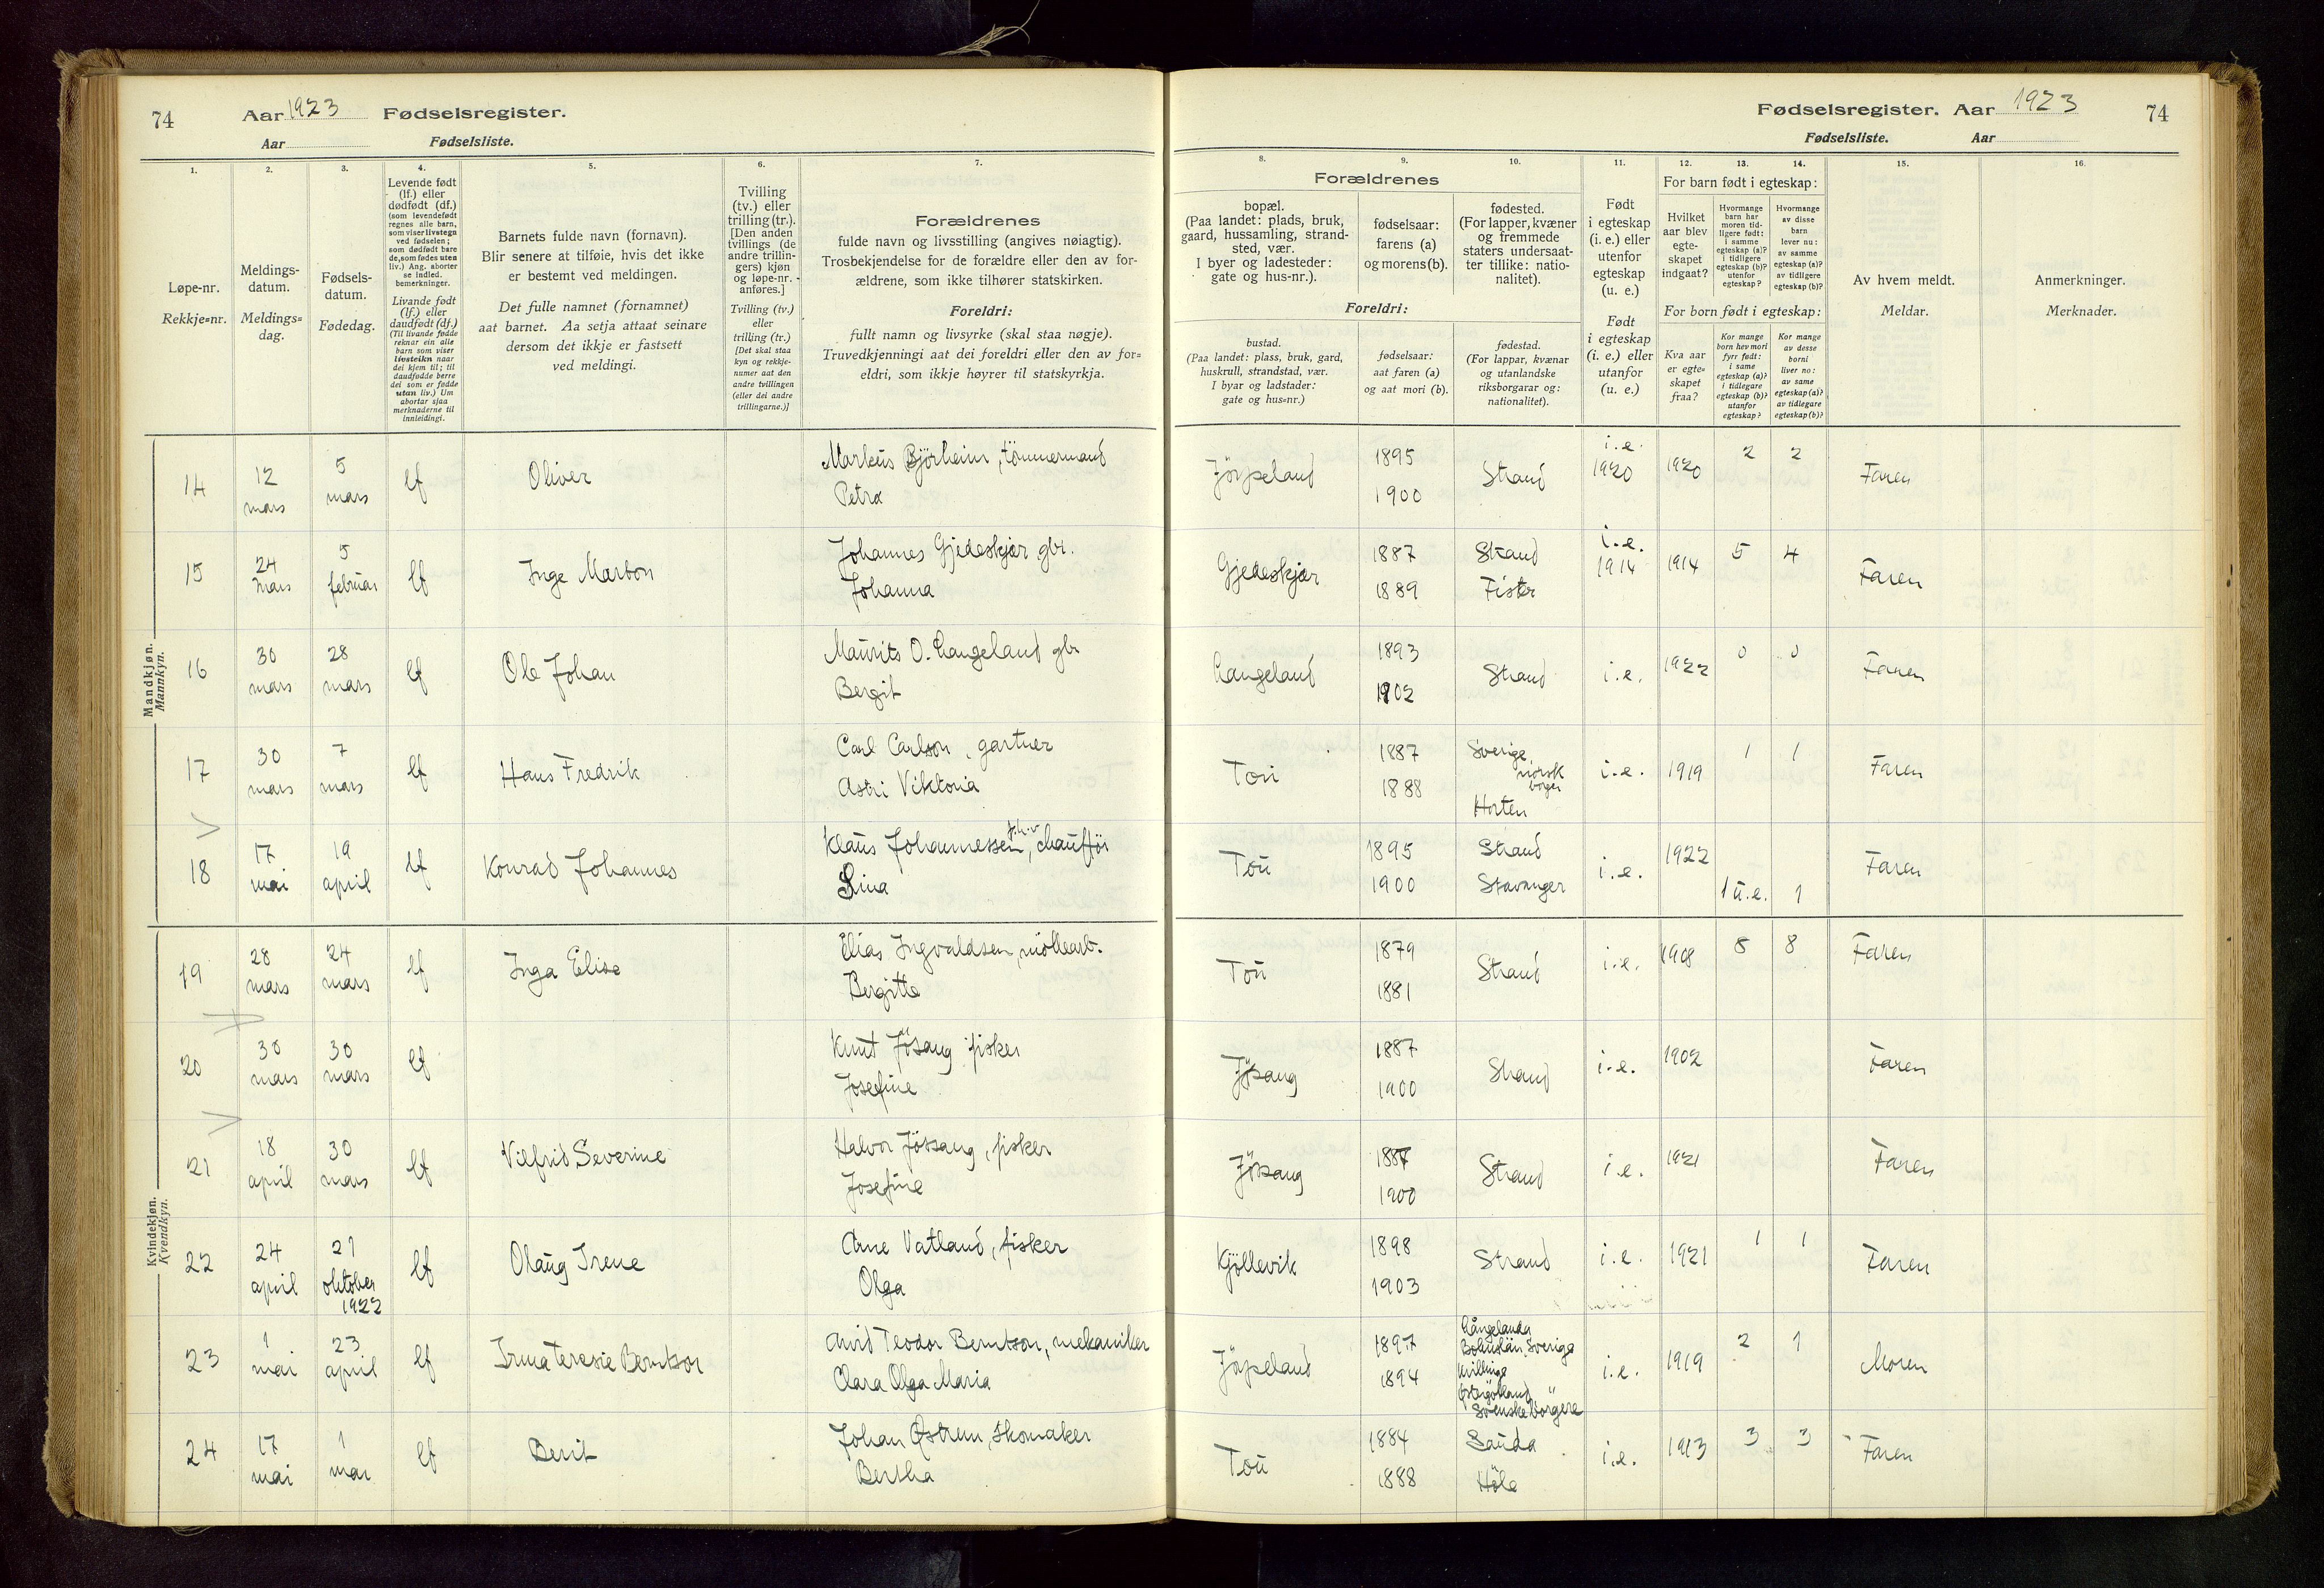 74 Aar 1923 Fødselsregister.
Aar Fødselsliste.
Fødselsregister. Aar 1923 74
Fødselsliste. Aar
1. 2. 3. 4. 5. 6. 7.
Løpe-nr.
Rekkje=nr.
Meldings-
datum.
Meldings=
dag.
Fødsels-
datum.
Fødedag.
Levende født
(lf.) eller
dødfødt (df.)
(som levendefødt
regnes alle barn,
som viser livstegn
ved fødselen;
som dødfødt bare
de, som fødes uten
liv.) Ang. aborter
se indled.
bemerkninger.
Livande født
(lf.) eller
daudfødt (df.)
(Til livande fødde
reknar ein alle
barn som viser
livsteikn naar
dei kjem til; til
daudfødde berre
dei som er fødde
utan liv.) Um
abortar sjaa
merknaderne til
innleidingi.
Barnets fulde navn (fornavn).
Blir senere at tilføie, hvis det ikke
er bestemt ved meldingen.
Det fulle namnet (fornamnet)
aat barnet. Aa setja attaat seinare
dersom det ikkje er fastsett
ved meldingi.
Tvilling
(tv.) eller
trilling (tr.).
[Den anden
tvillings (de
andre trillin-
gers) kjøn
og løpe-nr.
anføres.]
Tvilling (tv.)
eller
trilling (tr.)
[Det skal staa
kyn og rekkje-
numer aat den
andre tvillingen
(eller dei andre
trillingarne.)]
Forældrenes
fulde navn og livsstilling (angives nøiagtig).
Trosbekjendelse for de forældre eller den av for-
ældrene, som ikke tilhører statskirken.
Foreldri:
fullt namn og livsyrke (skal staa nøgje).
Truvedkjenningi aat dei foreldri eller den av for=
eldri, som ikkje høyrer til statskyrkja.
8. 9. 10. 11. 12. 13. 14. 15. 16.
Forældrenes
bopæl.
(Paa landet: plads, bruk,
gaard, hussamling, strand-
sted, vær.
I byer og ladesteder:
gate og hus-nr.).
fødselsaar:
farens (a)
og morens (b).
fødested.
(For lapper, kvæner
og fremmede
staters undersaat-
ter tillike: natio-
nalitet).
Foreldri:
bustad.
(Paa landet: plass, bruk, gard,
huskrull, strandstad, vær.
I byar og ladstader:
gate og hus=nr.)
fødselsaar:
aat faren (a)
og aat mori (b).
fødestad.
(For lappar, kvænar
og utanlandske
riksborgarar og:
nationalitet).
Født
i egteskap
(i. e.) eller
utenfor
egteskap
(u. e.)
Født
i egteskap
(i. e.) eller
utanfor
(u. e.)
For barn født i egteskap:
Hvilket
aar blev
egte-
skapet
indgaat?
Hvormange
barn har
moren tid-
ligere født:
i samme
egteskap (a)?
i tidligere
egteskap (b)?
utenfor
egteskap?
Hvormange
av disse
barn
lever nu:
av samme
egteskap (a)?
av tidligere
egteskap (b)?
For born født i egteskap:
Kva aar
er egte=
skapet
fraa?
Kor mange
born hev mori
fyrr født:
i same
egteskap (a)?
i tidlegare
egteskap (b)?
utanfor
egteskap?
Kor mange
av desse
borni
liver no:
av same
egteskap (a)?
av tidlegare
egteskap (b)?
Av hvem meldt.
Meldar.
Anmerkninger.
Merknader.
Mandkjøn.
Mannkyn.
14 12 mars 5 mars lf Oliver Markus Bjørheim, tömmermand Jörpeland 1895 Strand i.e. 1920 1920 2 2 Faren
Petra 1900
15 24 mars 5 februar lf Inge Marton Johannes Gjedeskjær gbr. Gjedeskjær 1887 Strand i.e. 1914 1914 5 4 Faren
Johanna 1889 Fister
16 30 mars 28 mars lf Ole Johan Maurits O. Langeland gbr Langeland 1893 Strand i.e. 1922 0 0 Faren
Bergit 1902
17 30 mars 7 mars lf Hans Fredrik Carl Carlson, gartner Tou 1887 Sverige, norsk borger i.e. 1919 1 1 Faren
Astri Viktoria 1888 Horten
18 17 mai 19 april lf Konrad Johannes Klaus Johannessen, chaufför Tou 1895 Strand i.e. 1922 Faren
Lina 1900 Stavanger 1 u.e. 1
Kvindekjøn.
Kvendkyn.
19 28 mars 24 mars lf Inga Elise Elias Ingvaldsen, möllearb. Tou 1879 Strand i.e. 1908 8 8 Faren
Bergitte 1881
20 30 mars 30 mars lf Knut Jösang fisker Jösang 1887 Strand i.e. 1902 Faren
Josefine 1900
21 18 april 30 mars lf Vilfrid Severine Halvor Jössang, fisker Jössang 1887 Strand i.e. 1921 Faren
Josefine 1900
22 24 april 21 oktober 1922 lf Olaug Irene Arne Vatland, fisker Kjöllevik 1898 Strand i.e. 1921 1 1 Faren
Olga 1903
23 1 mai 23 april lf Irma Teresie Berntson Arvid Teodor Berntson, mekaniker Jörpeland 1897 Långelanda Bohuslän, Sverige i.e. 1919 2 1 Moren
Clara Olga Maria 1894 Kvillinge Östergötland Svenske börgere
24 17 mai 1 mai lf Berit Johan Østrem, skomaker Tou 1884 Sauda i.e. 1913 3 3 Faren
Bertha 1888 Höle